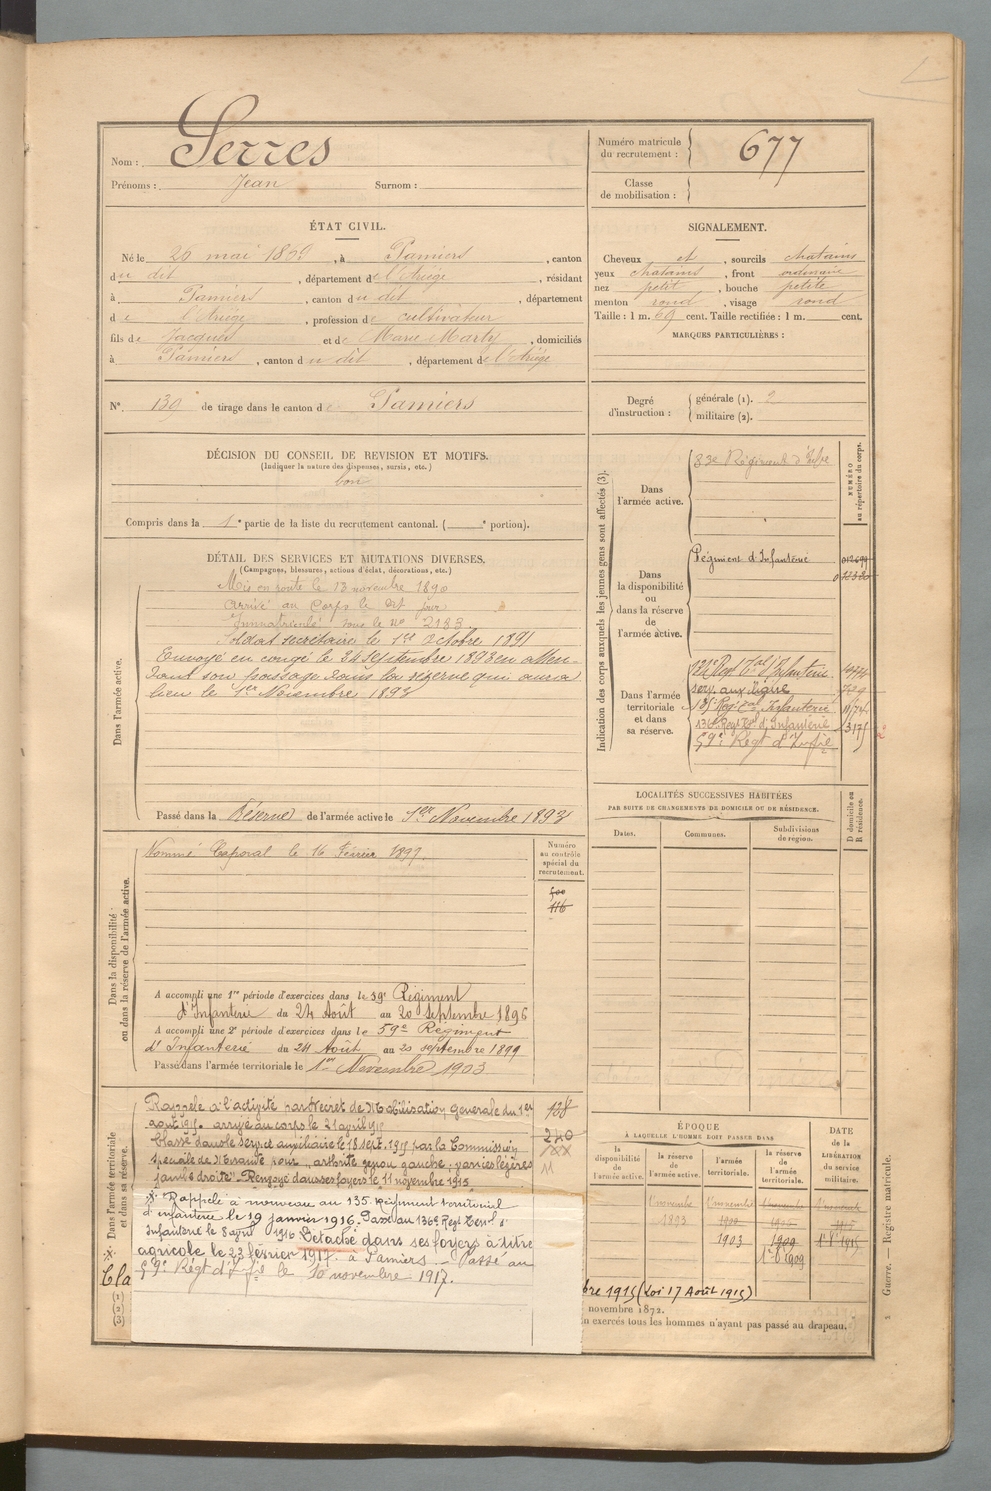 Nom : Serres
Prénoms : Jean Surnom :
Numéro matricule
du recrutement : 677
Classe
de mobilisation :
ÉTAT CIVIL.
Né le 26 mai 1869, à Pamiers, canton
du dit, département de l'Ariège, résidant
à Pamiers, canton du dit, département
de l'Ariège, profession de cultivateur
fils de Jacques et de Marie Marty, domiciliés
à Pamiers, canton du dit, département de l'Ariège
N° 139 de tirage dans le canton de Pamiers
SIGNALEMENT.
Cheveux et, sourcils chatains
yeux chatains, front ordinaire
nez petit, bouche petite
menton rond, visage rond
Taille : 1 m. 69 cent. Taille rectifiée : 1 m. cent.
MARQUES PARTICULIÈRES :
Degré
d'instruction :
générale (1). 2
militaire (2).
DÉCISION DU CONSEIL DE REVISION ET MOTIFS.
(Indiquer la nature des dispenses, sursis, etc.)
bon
Compris dans la 1e partie de la liste du recrutement cantonal. ( e portion).
DÉTAIL DES SERVICES ET MUTATIONS DIVERSES.
(Campagnes, blessures, actions d'éclat, décorations, etc.)
Dans l'armée active.
Mis en route le 13 novembre 1890
arrivé au Corps le dit jour
Immatriculé sous le n° 2183
Soldat secrétaire le 1er Octobre 1891
Envoyé en congé le 24 septembre 1893 en atten-
dant son passage dans la réserve qui aura
lieu le 1er Novembre 1893
Passé dans la Réserve de l'armée active le 1er Novembre 1893
Indication des corps auxquels les jeunes gens sont affectés (3).
NUMÉRO
au répertoire du corps.
Dans
l'armée active.
83e Régiment d'Infie
Dans
la disponibilité
ou
dans la réserve
de
l'armée active.
Régiment d'Infanterie
Dans l'armée
territoriale
et dans
sa réserve.
Regt Tal d'Infanterie
serv. aux
135e Regt tal Infanterie
136e Regt Tal d'Infanterie 3175
59e Régt d'Infie
LOCALITÉS SUCCESSIVES HABITÉES
PAR SUITE DE CHANGEMENTS DE DOMICILE OU DE RÉSIDENCE.
Dates.
Communes.
Subdivisions
de région.
D domicile ou
R résidence.
Dans la disponibilité
ou dans la réserve de l'armée active.
Nommé Caporal le 16 Février 1897.
Numéro
au contrôle
spécial du
recrutement.
116
A accompli une 1re période d'exercices dans le 59e Régiment
d'Infanterie du 24 Août au 20 septembre 1896
A accompli une 2e période d'exercices dans le 59e Régiment
d'Infanterie du 24 Août au 20 septembre 1899
Passé dans l'armée territoriale le 1er Novembre 1903
Dans l'armée territoriale
et dans sa réserve.
Rappelé à l'activité par Décret de Mobilisation générale du 1er
août arrivé au corps le 21 avril
Classé dans le service auxiliaire le 18 sept. 1915 par la Commission
spéciale de Mirande pour arthrite genou gauche, varices légères
jambe droite. Renvoyé dans ses foyers le 11 novembre 1915
138
240
11
Rappelé à nouveau au 135e régiment territorial
d'infanterie le 19 janvier 1916. Passé au 136e Regt Terrl d'
Infanterie le 8 avril 1916 Détaché dans ses foyers à titre
agricole le 23 février 1917. à Pamiers — Passé au
59e Régt d'Infie le 10 novembre 1917.
Cla
(1)
(2)
(3)
ÉPOQUE
À LAQUELLE L'HOMME DOIT PASSER DANS
la
disponibilité
de
l'armée active.
la réserve
de
l'armée active.
l'armée
territoriale.
la réserve
de
l'armée
territoriale.
DATE
de la
LIBÉRATION
du service
militaire.
1 novembre
1893
1 novembre
1900
1903
1909
1er 8bre 1909
bre 1915 (Loi 17 Août 1915)
novembre 1872.
n exercés tous les hommes n'ayant pas passé au drapeau.
Guerre. — Registre matricule.